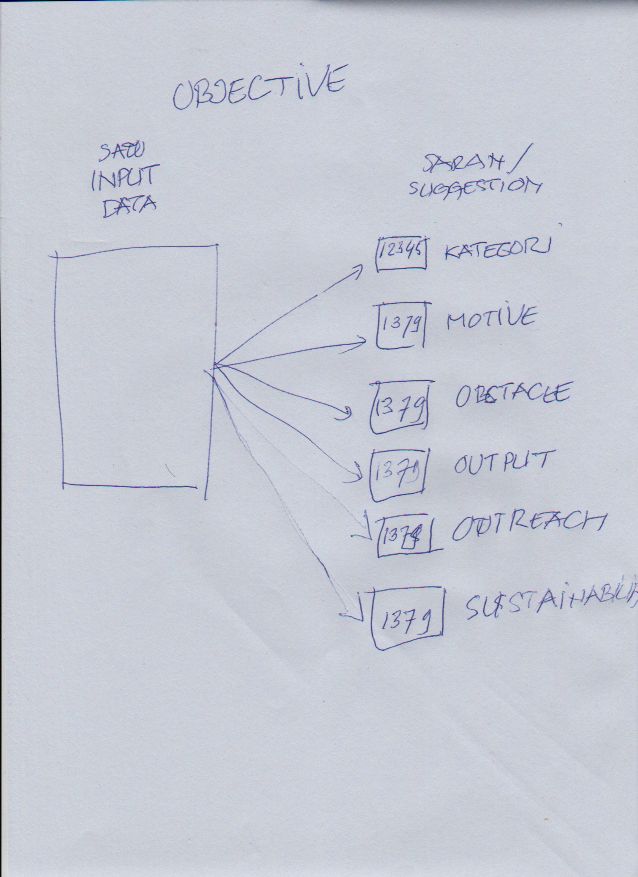 OBJECTIVE
SATU
INPUT
DATA
SARAN/
SUGGESTION
12345 KATEGORI
1379 MOTIVE
1379 OBSTACLE
1379 OUTPUT
1379 OUTREACH
1379 SUSTAINABILI